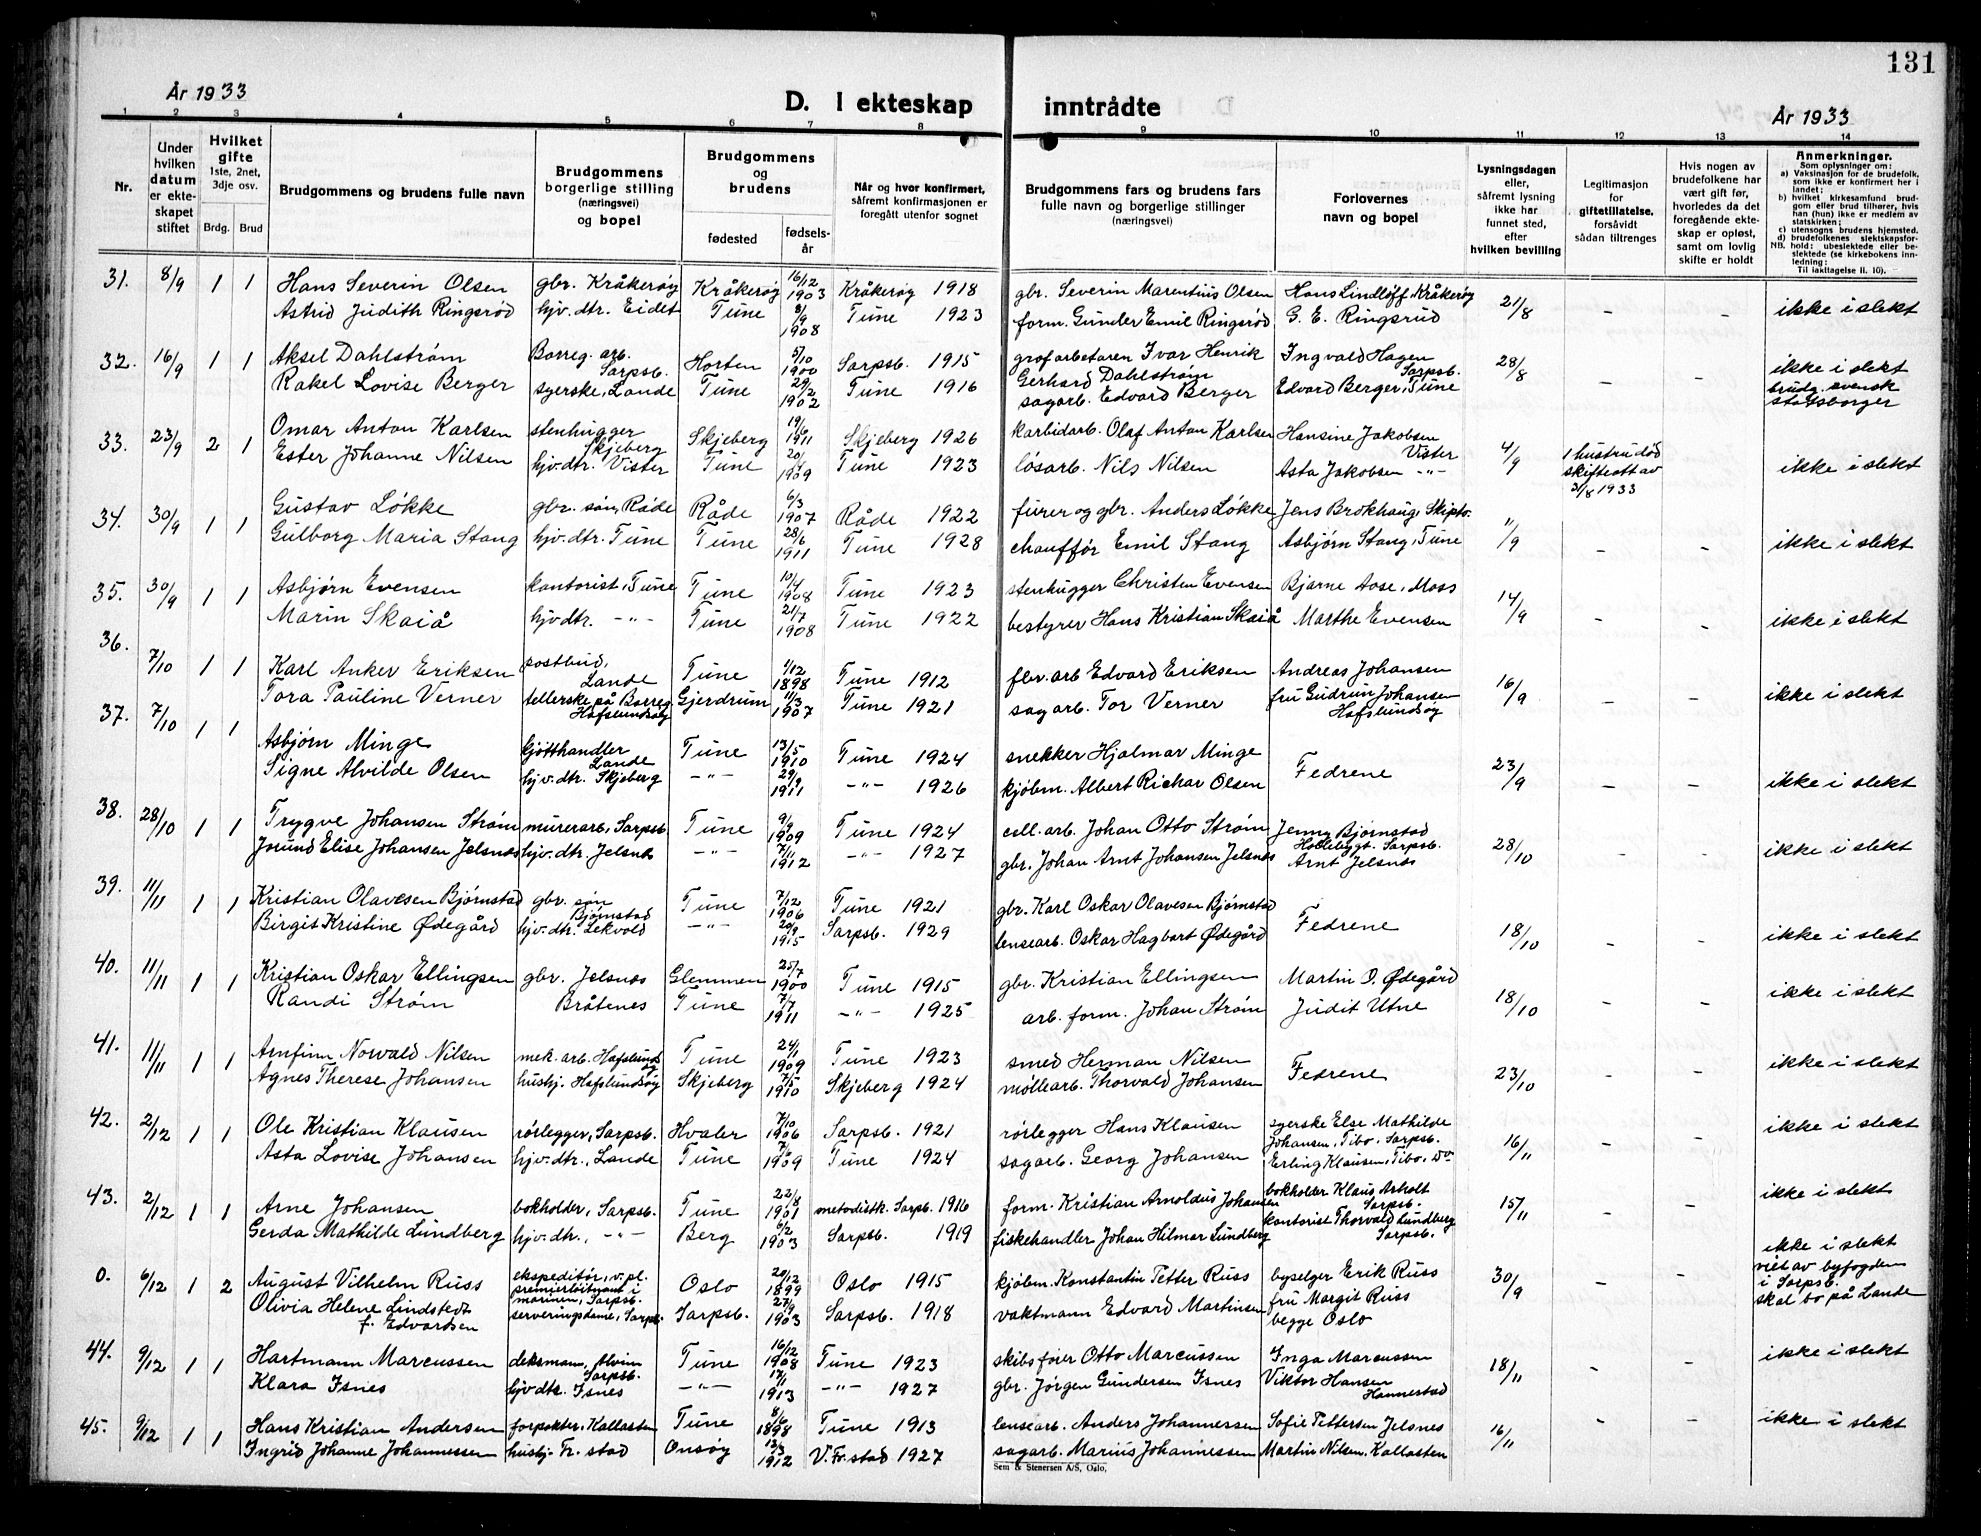 131
År 1933
D. I ekteskap inntrådte
År 1933
1 2 3 4 5 6 7 8 9 10 11 12 13 14
Nr.
Under hvilken datum er ekteskapet stiftet
Hvilket gifte 1ste, 2net, 3dje osv.
Brdg. Brud
Brudgommens og brudens fulle navn
Brudgommens borgerlige stilling (næringsvei) og bopel
Brudgommens og brudens
fødested fødselsår
Når og hvor konfirmert, såfremt konfirmasjonen er foregått utenfor sognet
Brudgommens fars og brudens fars fulle navn og borgerlige stillinger (næringsvei)
Forlovernes navn og bopel
Lysningsdagen eller, såfremt lysning ikke har funnet sted, efter hvilken bevilling
Legitimasjon for giftetillatelse, forsåvidt sådan tiltrenges
Hvis nogen av brudefolkene har vært gift før, hvorledes da det foregående ekteskap er opløst, samt om lovlig skifte er holdt
Anmerkninger.
Som oplysninger om:
a) Vaksinasjon for de brudefolk, som ikke er konfirmert her i landet;
b) hvilket kirkesamfund brudgom eller brud tilhører, hvis han (hun) ikke er medlem av statskirken;
c) utensogns brudens hjemsted.
d) brudefolkenes slektskapsforhold: ubeslektede eller beslektede (se kirkebokens innledning:
NB. Til iakttagelse II. 10).
31. 8/9 1 1 Hans Severin Olsen gbr. Kråkerøy Kråkerøy 16/12 1903 Kråkerøy 1918 gbr. Severin Marentius Olsen Hans Lindløff, Kråkerøy 21/8 - - ikke i slekt
Astrid Judith Ringsrød hjv. dtr. Eidet Tune 8/9 1908 Tune 1923 form. Gunder Emil Ringsrød G. E. Ringsrud
32. 16/9 1 1 Aksel Dahlstrøm Borreg. arb. Sarpsb. Horten 5/10 1900 Sarpsb. 1915 grofarbetaren Ivar Henrik Gerhard Dahlström Ingvald Hagen Sarpsb. 28/8 - - ikke i slekt
Rakel Lovise Berger syerske, Lande Tune 29/2 1902 Tune 1916 sagarb. Edvard Berger Edvard Berger, Tune brudg. svensk statsborger
33. 23/9 2 1 Omar Anton Karlsen stenhugger Skjeberg Skjeberg 19/6 1911 Skjeberg 1926 karbidarb. Olaf Anton Karlsen Hansine Jakobsen Vister 4/9 1 hustru død skifteatt av 31/8 1933 ikke i slekt
Ester Johanne Nilsen hjv. dtr. Vister Tune 1909 Tune 1923 løsarb. Nils Nilsen Asta Jakobsen -"-
34. 30/9 1 1 Gustav Løkke gbr. søn, Råde Råde 6/3 1907 Råde 1922 furer og gbr. Anders Løkke Jens Brokhaug, Skiptv. 11/9 - - ikke i slekt
Gulborg Maria Stang hjv. dtr. Tune Tune 28/6 1911 Tune 1928 chauffør Emil Stang Asbjørn Stang, Tune
35. 30/9 1 1 Asbjørn Evensen kontorist, Tune Tune 10/4 1908 Tune 1923 stenhugger Christen Evensen Bjarne Aose, Moss 14/9 - - ikke i slekt
Marin Skaiå hjv. dtr. -"- Tune 21/7 1908 Tune 1922 bestyrer Hans Kristian Skaiå Marthe Evensen
36. 7/10 1 1 Karl Anker Eriksen postbud, Lande Tune 1/12 1898 Tune 1912 flv. arb Edvard Eriksen Andreas Johansen 16/9 - - ikke i slekt
Tora Pauline Verner tellerske på Borreg. Hafslundsøy Gjerdrum 11/3 1907 Tune 1921 sagarb. Tor Verner fru Gudrun Johansen Hafslundsøy
37. 7/10 1 1 Asbjørn Minge kjøtthandler Lande Tune 13/5 1910 Tune 1924 snekker Hjalmar Minge Fedrene 23/9 - - ikke i slekt
Signe Alvilde Olsen hjv. dtr. Skjeberg -"- 29/9 1911 -"- 1926 kjøbm. Albert Richar Olsen
38. 28/10 1 1 Trygve Johansen Strøm murerarb, Sarpsb Tune 9/9 1909 Tune 1924 cell. arb. Johan Otto Strøm Jenny Bjørnstad Hollebygt. Sarpsb. 28/10 - - ikke i slekt
Jorund Elise Johansen Jelsnes hjv. dtr. Jelsnes -"- 7/11 1912 -"- 1927 gbr. Johan Arnt Johansen Jelsnes Arnt Jelsnes
39. 11/11 1 1 Kristian Olavesen Bjørnstad gbr. søn Bjørnstad Tune 7/12 1906 Tune 1921 gbr. Karl Oskar Olavesen Bjørnstad Fedrene 18/10 - - ikke i slekt
Birgit Kristine Ødegård hjv. dtr. Lekvold -"- 20/9 1915 Sarpsb. 1929 lensearb. Oskar Hagbart Ødegård
40. 11/11 1 1 Kristian Oskar Ellingsen gbr. Jelsnes Glemmen 25/7 1900 Tune 1915 gbr. Kristian Ellingsen Martin O. Ødegård 18/10 - - ikke i slekt
Randi Strøm Bråtenes Tune 7/7 1911 -"- 1925 arb. form. Johan Strøm Judit Utne
41. 11/11 1 1 Arnfinn Norvald Nilsen mek. arb. Hafslundsøy Tune 24/1 1909 Tune 1923 smed Herman Nilsen Fedrene 23/10 - - ikke i slekt
Agnes Therese Johansen hushj. Hafslundsøy Skjeberg 7/5 1910 Skjeberg 1924 møllearb. Thorvald Johansen
42. 2/12 1 1 Ole Kristian Klausen rørlegger, Sarpsb. Hvaler 7/10 1906 Sarpsb. 1921 rørlegger Hans Klausen syerske Else Mathilde Johansen, Tibo. Sarpsb. 16/11 - - ikke i slekt
Asta Lovise Johansen hjv. dtr., Lande Tune 1909 Tune 1924 sagarb. Georg Johansen Erling Klausen, Tibo. do
43. 2/12 1 1 Arne Johansen bokholder, Sarpsb. Tune 22/8 1901 metodistk. Sarpsb. 1916 form. Kristian Arnoldus Johansen bokholder Klaus Arholt Sarpsb. 15/11 - - ikke i slekt
Gerda Mathilde Lundberg hjv. dtr., -"- Berg 6/2 1903 Sarpsb. 1919 fiskehandler Johan Hilmar Lundberg kontorist Thorvald Lundberg Sarpsb.
0. 6/12 1 2 August Vilhelm Russ ekspeditør, v.pl. premierløitnant i marinen, Sarpsb. Oslo 20/12 1899 Oslo 1915 kjøbm. Konstantin Tetter Russ byselger Erik Russ 30/9 ikke i slekt viet av byfogden i Sarpsb. skal bo på Lande
Olivia Helene Lindstedt f. Edvardsen serveringsdame, Sarpsb. Sarpsb. 27/9 1903 Sarpsb. 1918 vaktmann Edvard Martinsen fru Margit Russ begge Oslo
44. 9/12 1 1 Hartmann Marcussen deksmann, Alvim Sarpsb. Tune 16/12 1908 Tune 1923 skibsfører Otto Marcussen Inga Marcussen 18/11 - - ikke i slekt
Klara Isnes hjv. dtr. Isnes -"- 17/11 1913 -"- 1927 gbr. Jørgen Gundersen Isnes Viktor Hansen Hannestad
45. 9/12 1 1 Hans Kristian Andersen forpakter, Kallasten Tune 8/6 1898 Tune 1913 lensearb. Anders Johannessen Sofie Pettersen Jelsnes 16/11 - - ikke i slekt
Ingrid Johanne Johannessen hushj. Fr. stad Onsøy 13/3 1912 V. Fr. stad 1927 sagarb. Marius Johannessen Martin Nilsen, Kallasten
Sem & Stenersen A/S, Oslo.